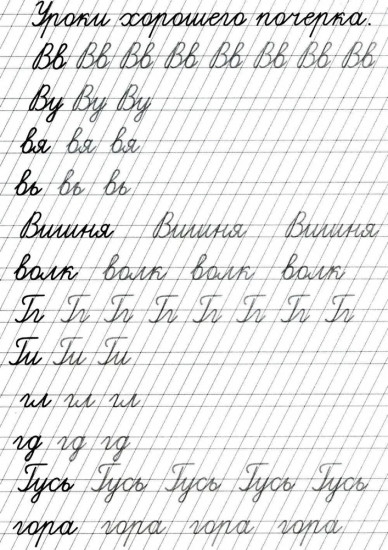 Уроки хорошего почерка.
Вв Вв Вв Вв Вв Вв Вв Вв
Ву Ву Ву
вя вя вя
вь вь вь
Вишня Вишня Вишня
волк волк волк волк
Гг Гг Гг Гг Гг Гг Гг Гг
Ги Ги Ги
гл гл гл
гд гд гд
Гусь Гусь Гусь Гусь Гусь
гора гора гора гора